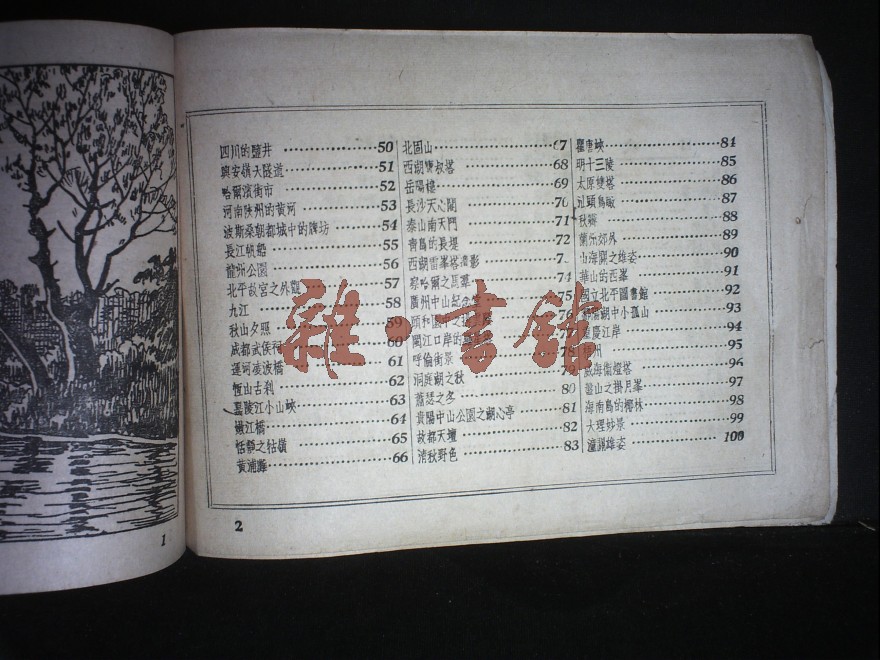 四川的鹽井 50
興安嶺大隧道 51
哈爾濱街市 52
河南陝州的黄河 53
波斯桑朝都城中的牌坊 54
長江帆船 55
龍州公園 56
北平故宮之外觀 57
九江 58
秋山夕照 59
成都武侯祠 60
運河凌波橋 61
恆山古刹 62
嘉陵江小山峽 63
鎮江橋 64
恬靜之牯嶺 65
黃浦灘 66
北固山 67
西湖寶叔塔 68
岳陽樓 69
長沙天心閣 70
泰山南天門 71
靑島的長堤 72
西湖雷峯塔 7
察哈爾之馬羣 74
廣州中山紀念堂 75
頤和園中之 76
閩江口岸的
呼倫街景 78
洞庭湖之秋 79
蕭瑟之冬 80
貴陽中山公園之湖心亭 81
故都天壇 82
清秋野色 83
瞿唐峽 84
明十三陵 85
太原雙塔 86
鳥瞰 87
秋 88
蘭州郊外 89
山海關之雄姿 90
華山的西峯 91
國立北平圖書館 92
陽湖中小孤山 93
重慶江岸 94
州 95
威海衞燈塔 96
之掛月峯 97
海南島的椰林 98
大理妙景 99
潼關雄姿 100
雜·書館
1
2